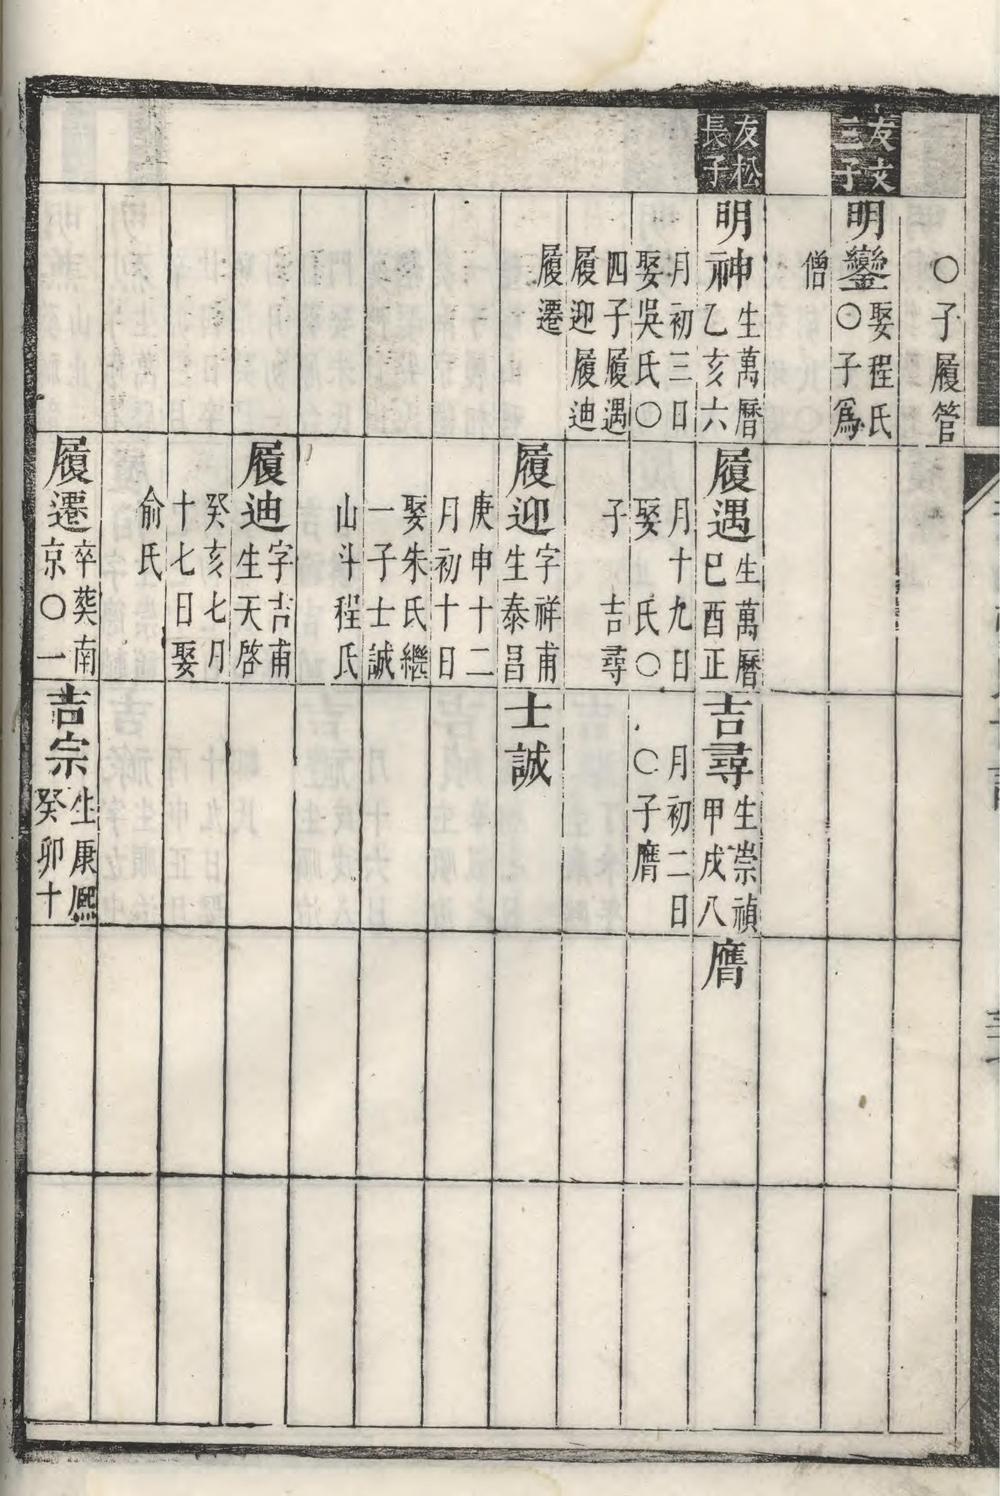 ○子履管
友文
三子
明鑾
娶程氏
○子爲
僧
友松
長子
明神
生萬曆
乙亥六
月初三日
娶吳氏○
四子履遇
履迎履迪
履遷
履遇
生萬曆
巳酉正
月十九日
娶 氏○
子 吉尋
履迎
字祥甫
生泰昌
庚申十二
月初十日
娶朱氏繼
一子士誠
山斗程氏
履迪
字吉甫
生天啓
癸亥七月
十七日娶
俞氏
履遷
卒葬南
京○一
吉尋
生崇禎
甲戌八
月初二日
○子膺
士誠
吉宗
生康熙
癸卯十
膺